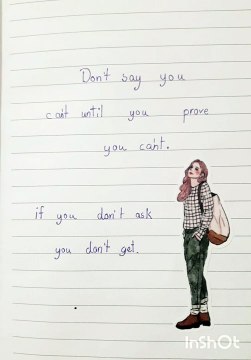 Don't say you
can't until you prove
you can't.
if you don't ask
you don't get.
InShOt